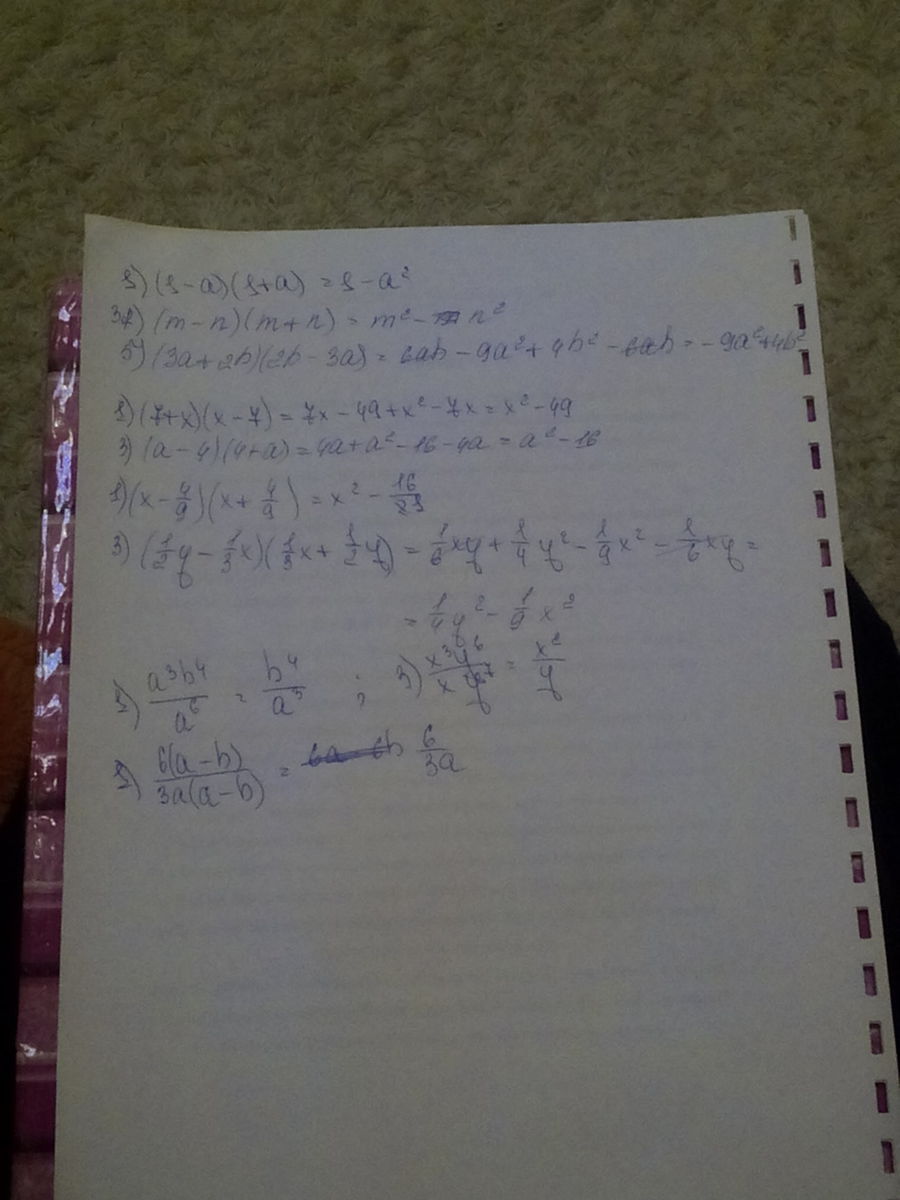 1) (1-a)(1+a) = 1-a²
3) (m-n)(m+n) = m² - n²
5) (3a+2b)(2b-3a) = 6ab - 9a² + 4b² - 6ab = -9a²+4b²
1) (7+x)(x-7) = 7x-49+x²-7x = x²-49
3) (a-4)(4+a) = 4a+a²-16-4a = a²-16
1) (x - 4/9)(x + 4/9) = x² - 16/81
3) (1/2 y - 1/3 x)(1/3 x + 1/2 y) = 1/6 xy + 1/4 y² - 1/9 x² - 1/6 xy =
= 1/4 y² - 1/9 x²
1) a³b⁴/a⁶ = b⁴/a³ ; 3) x³y⁶/xy⁷ = x²/y
1) 6(a-b)/3a(a-b) = 6/3a